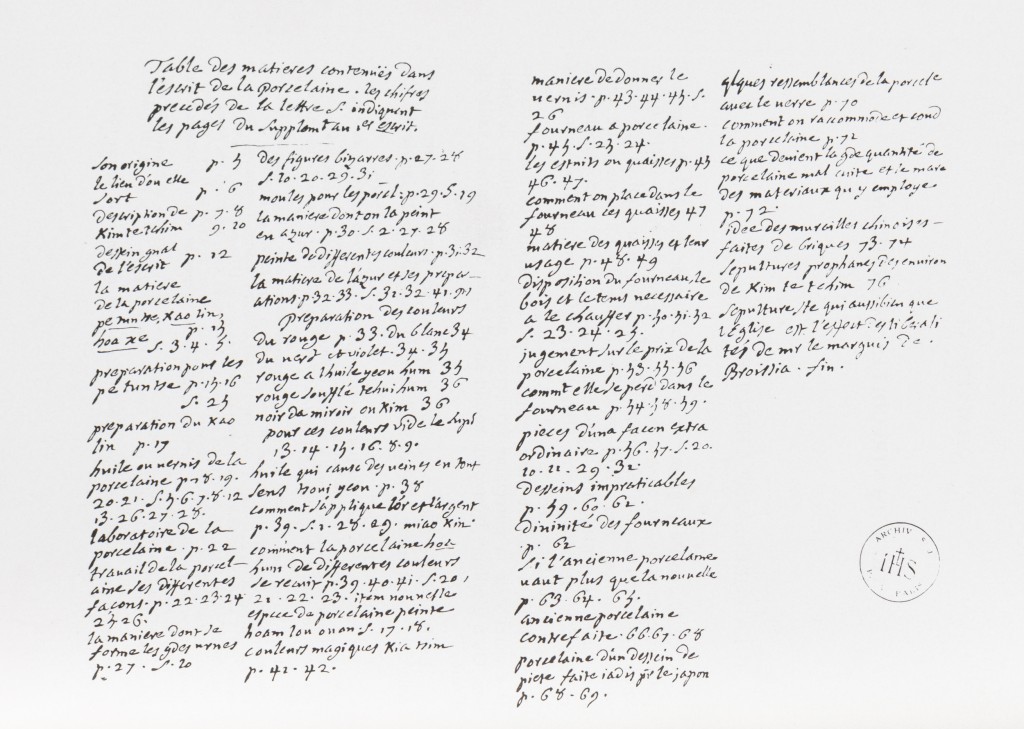 Table des matieres contenuës dans
l'escrit de la porcelaine. les chifres
precedés de la lettre S. indiquent
les pages du Supplemt au 1er escrit.
Son origine p. 5
le lieu d'ou elle
sort p. 6
description de p. 7. 8
Kim te tchim 9. 10
dessin gnal
de l'escrit p. 12
la matiere
de la porcelaine
pe tun tse, Kao lin,
hoa xe p. 13
S. 3. 4. 5.
preparation pour les
pe tuntse p. 15. 16
S. 25
preparation du Kao
lin p. 17
huile ou vernis de la
porcelaine p. 18. 19.
20. 21. S. 5. 6. 7. 8. 12
13. 26. 27. 28.
laboratoire de la
porcelaine. p. 22
travail de la porcel-
aine ses differentes
façons. p. 22. 23. 24
25. 26.
la maniere dont se
forme les gdes urnes
p. 27. S. 20
des figures bizarres. p. 27. 28
S. 10. 20. 29. 31
moules pour les porcel. p. 29. S. 19
la maniere dont on la peint
en azur. p. 30. S. 2. 27. 28
peinte de differentes couleurs. p. 31. 32
la matiere de l'azur et ses prepar-
ations. p. 32. 33. S. 31. 32. 41.
preparation des couleurs
du rouge p. 33. du blanc 34
du verd et violet. 34. 35
rouge a l'huile yeou hum 35
rouge soufflé tchui hum 36
noir de miroir ou Kim 36
pour ces couleurs vide le Supl
13. 14. 15. 16. 8. 9.
huile qui cause des veines en tout
sens tsoui yeou. p. 38
comment s'applique l'or et l'argent
p. 39. S. 1. 28. 29. miao Kin.
comment la porcelaine hoa
hum de differentes couleurs
se recuit p. 39. 40. 41. S. 20,
21. 22. 23. item nouvelle
espece de porcelaine peinte
hoam lou ouan S. 17. 18.
couleurs magiques Kia tsim
p. 41. 42.
maniere de donner le
vernis. p. 43. 44. 45. S.
26
fourneau a porcelaine.
p. 45. S. 23. 24.
les estuits ou quaisses p. 45
46. 47.
comment on place dans le
fourneau ces quaisses 47
48
matiere des quaisses et leur
usage p. 48. 49
disposition du fourneau, le
bois et le tems necessaire
a le chauffer p. 50. 51. 52
S. 23. 24. 25.
jugement sur le prix de la
porcelaine p. 53. 55. 56
commt elle se perd dans le
fourneau p. 54. 58. 59.
pieces d'une facon extra
ordinaire p. 56. 57. S. 20.
20. 21. 29. 32.
desseins impraticables
p. 59. 60. 62.
divinité des fourneaux
p. 62
si l'ancienne porcelaine
vaut plus que la nouvelle
p. 63. 64. 65.
ancienne porcelaine
contrefaite. 66. 67. 68
porcelaine d'un dessein de
pieté faite iadis pr le japon
p. 68. 69.
qlques ressemblances de la porcele
avec le verre p. 70
comment on raccommode et coud
la porcelaine p. 72
ce que devient la gde quantité de
porcelaine mal cuite et le marc
des materiaux qu'y employe.
p. 72.
idée des murailles chinoises-
faites de briques 73. 74
sepultures prophanes des environ
de Kim te tchim 76
sepulture, ste qui aussi bien que
l'église est l'effect des liberali
tés de mr le marquis de.
Broissia. fin.
ARCHIV S J
IHS
PARIS